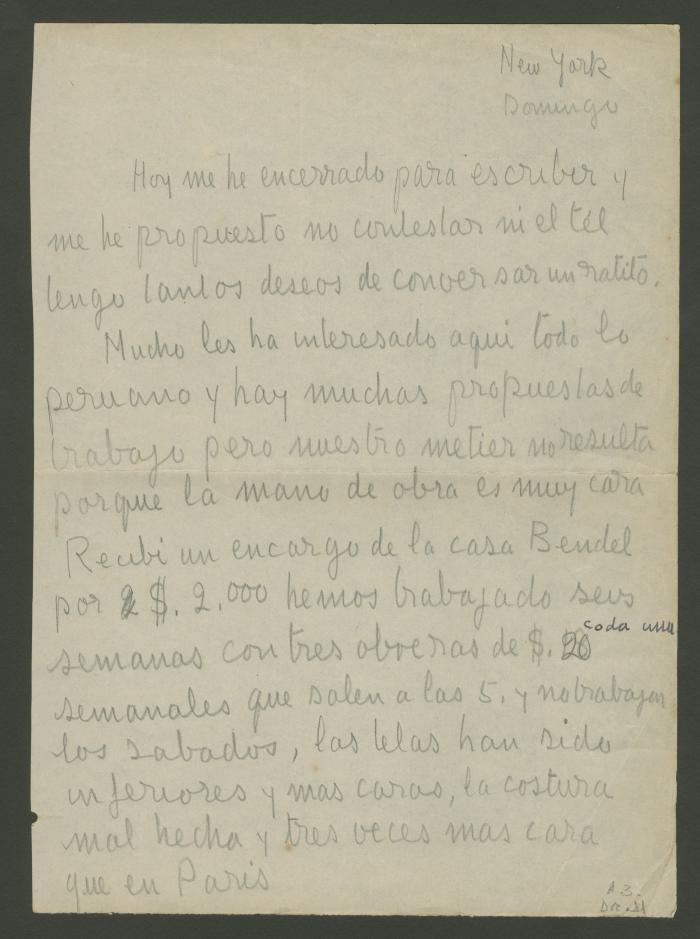 New York
Domingo
Hoy me he encerrado para escribir y
me he propuesto no contestar ni el tél
tengo tantos deseos de conversar un ratito.
Mucho les ha interesado aqui todo lo
peruano y hay muchas propuestas de
trabajo pero nuestro metier no resulta
porque la mano de obra es muy cara
Recibi un encargo de la casa Bendel
por $. 2.000 hemos trabajado seis
cada una
semanas con tres obreras de $. 20
semanales que salen a las 5. y no trabajan
los sabados, las telas han sido
inferiores y mas caras, la costura
mal hecha y tres veces mas cara
que en Paris
A.3.
Doc.